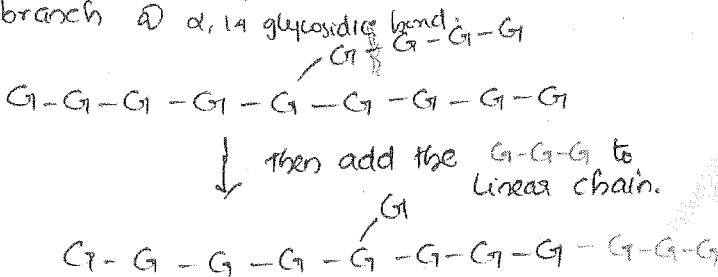 branch @ α, 14 glycosidic bond.
G-G-G-G
G-G-G-G-G-G-G-G-G
then add the G-G-G to
Linear chain.
G
G-G-G-G-G-G-G-G-G-G-G